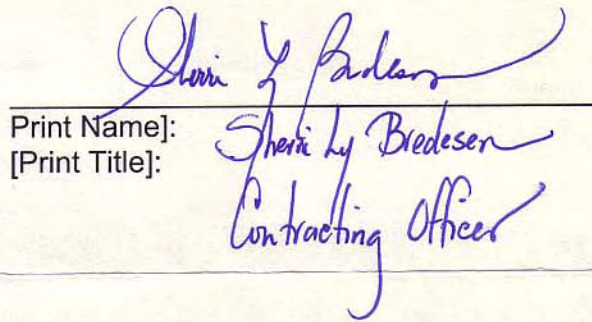 Sherri L Bredesen
Print Name]: Sherri Ly Bredesen
[Print Title]:
Contracting Officer